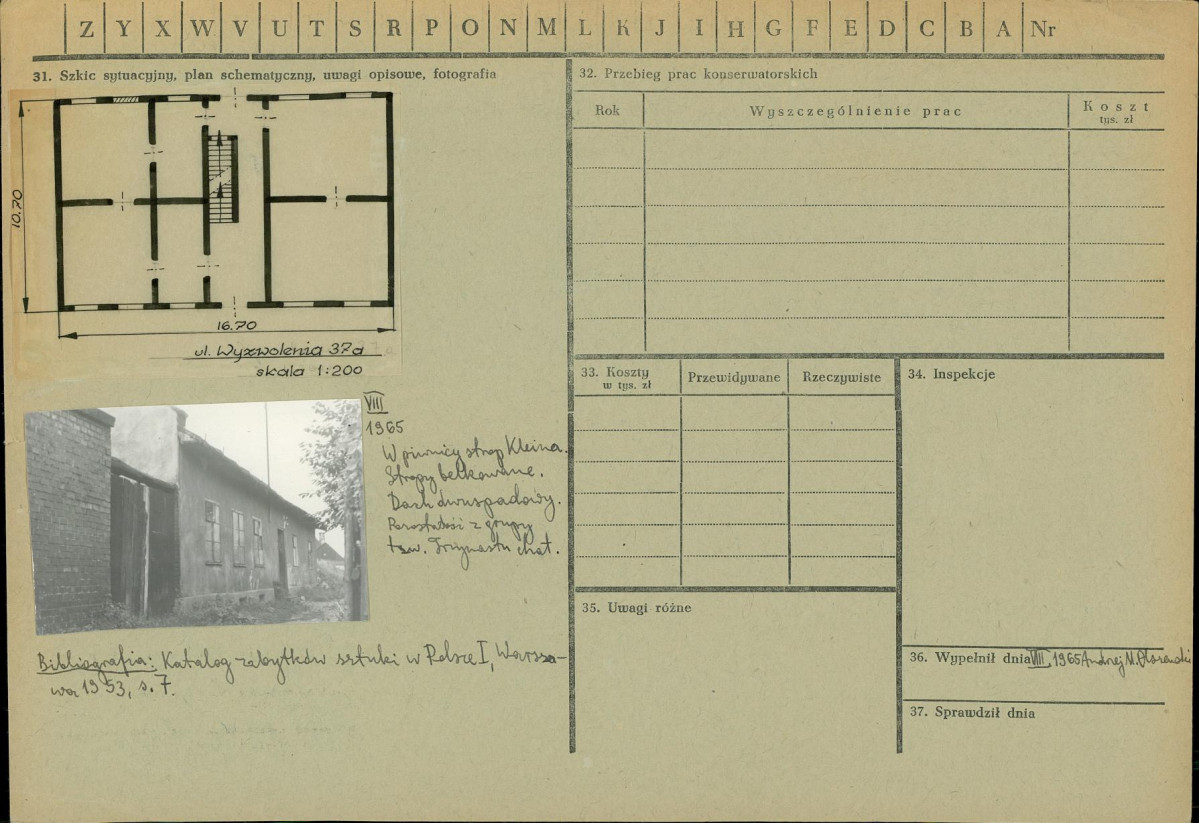 Z Y X W V U T S R P O N M L K J I H G F E D C B A Nr
31. Szkic sytuacyjny, plan schematyczny, uwagi opisowe, fotografia
10.70
16.70
ul. Wyzwolenia 37a
skala 1:200
VIII
1965
W piwnicy strop Kleina.
Stropy belkowane.
Dach dwuspadowy.
Pozostałość z grupy
tzw. Trzynastu chat.
Bibliografia: Katalog zabytków sztuki w Polsce I, Warsza-
wa 1953, s. 7.
32. Przebieg prac konserwatorskich
Rok
Wyszczególnienie prac
Koszt
tys. zł
33. Koszty
w tys. zł
Przewidywane
Rzeczywiste
34. Inspekcje
35. Uwagi różne
36. Wypełnił dnia VIII 1965 Andrzej M.
37. Sprawdził dnia